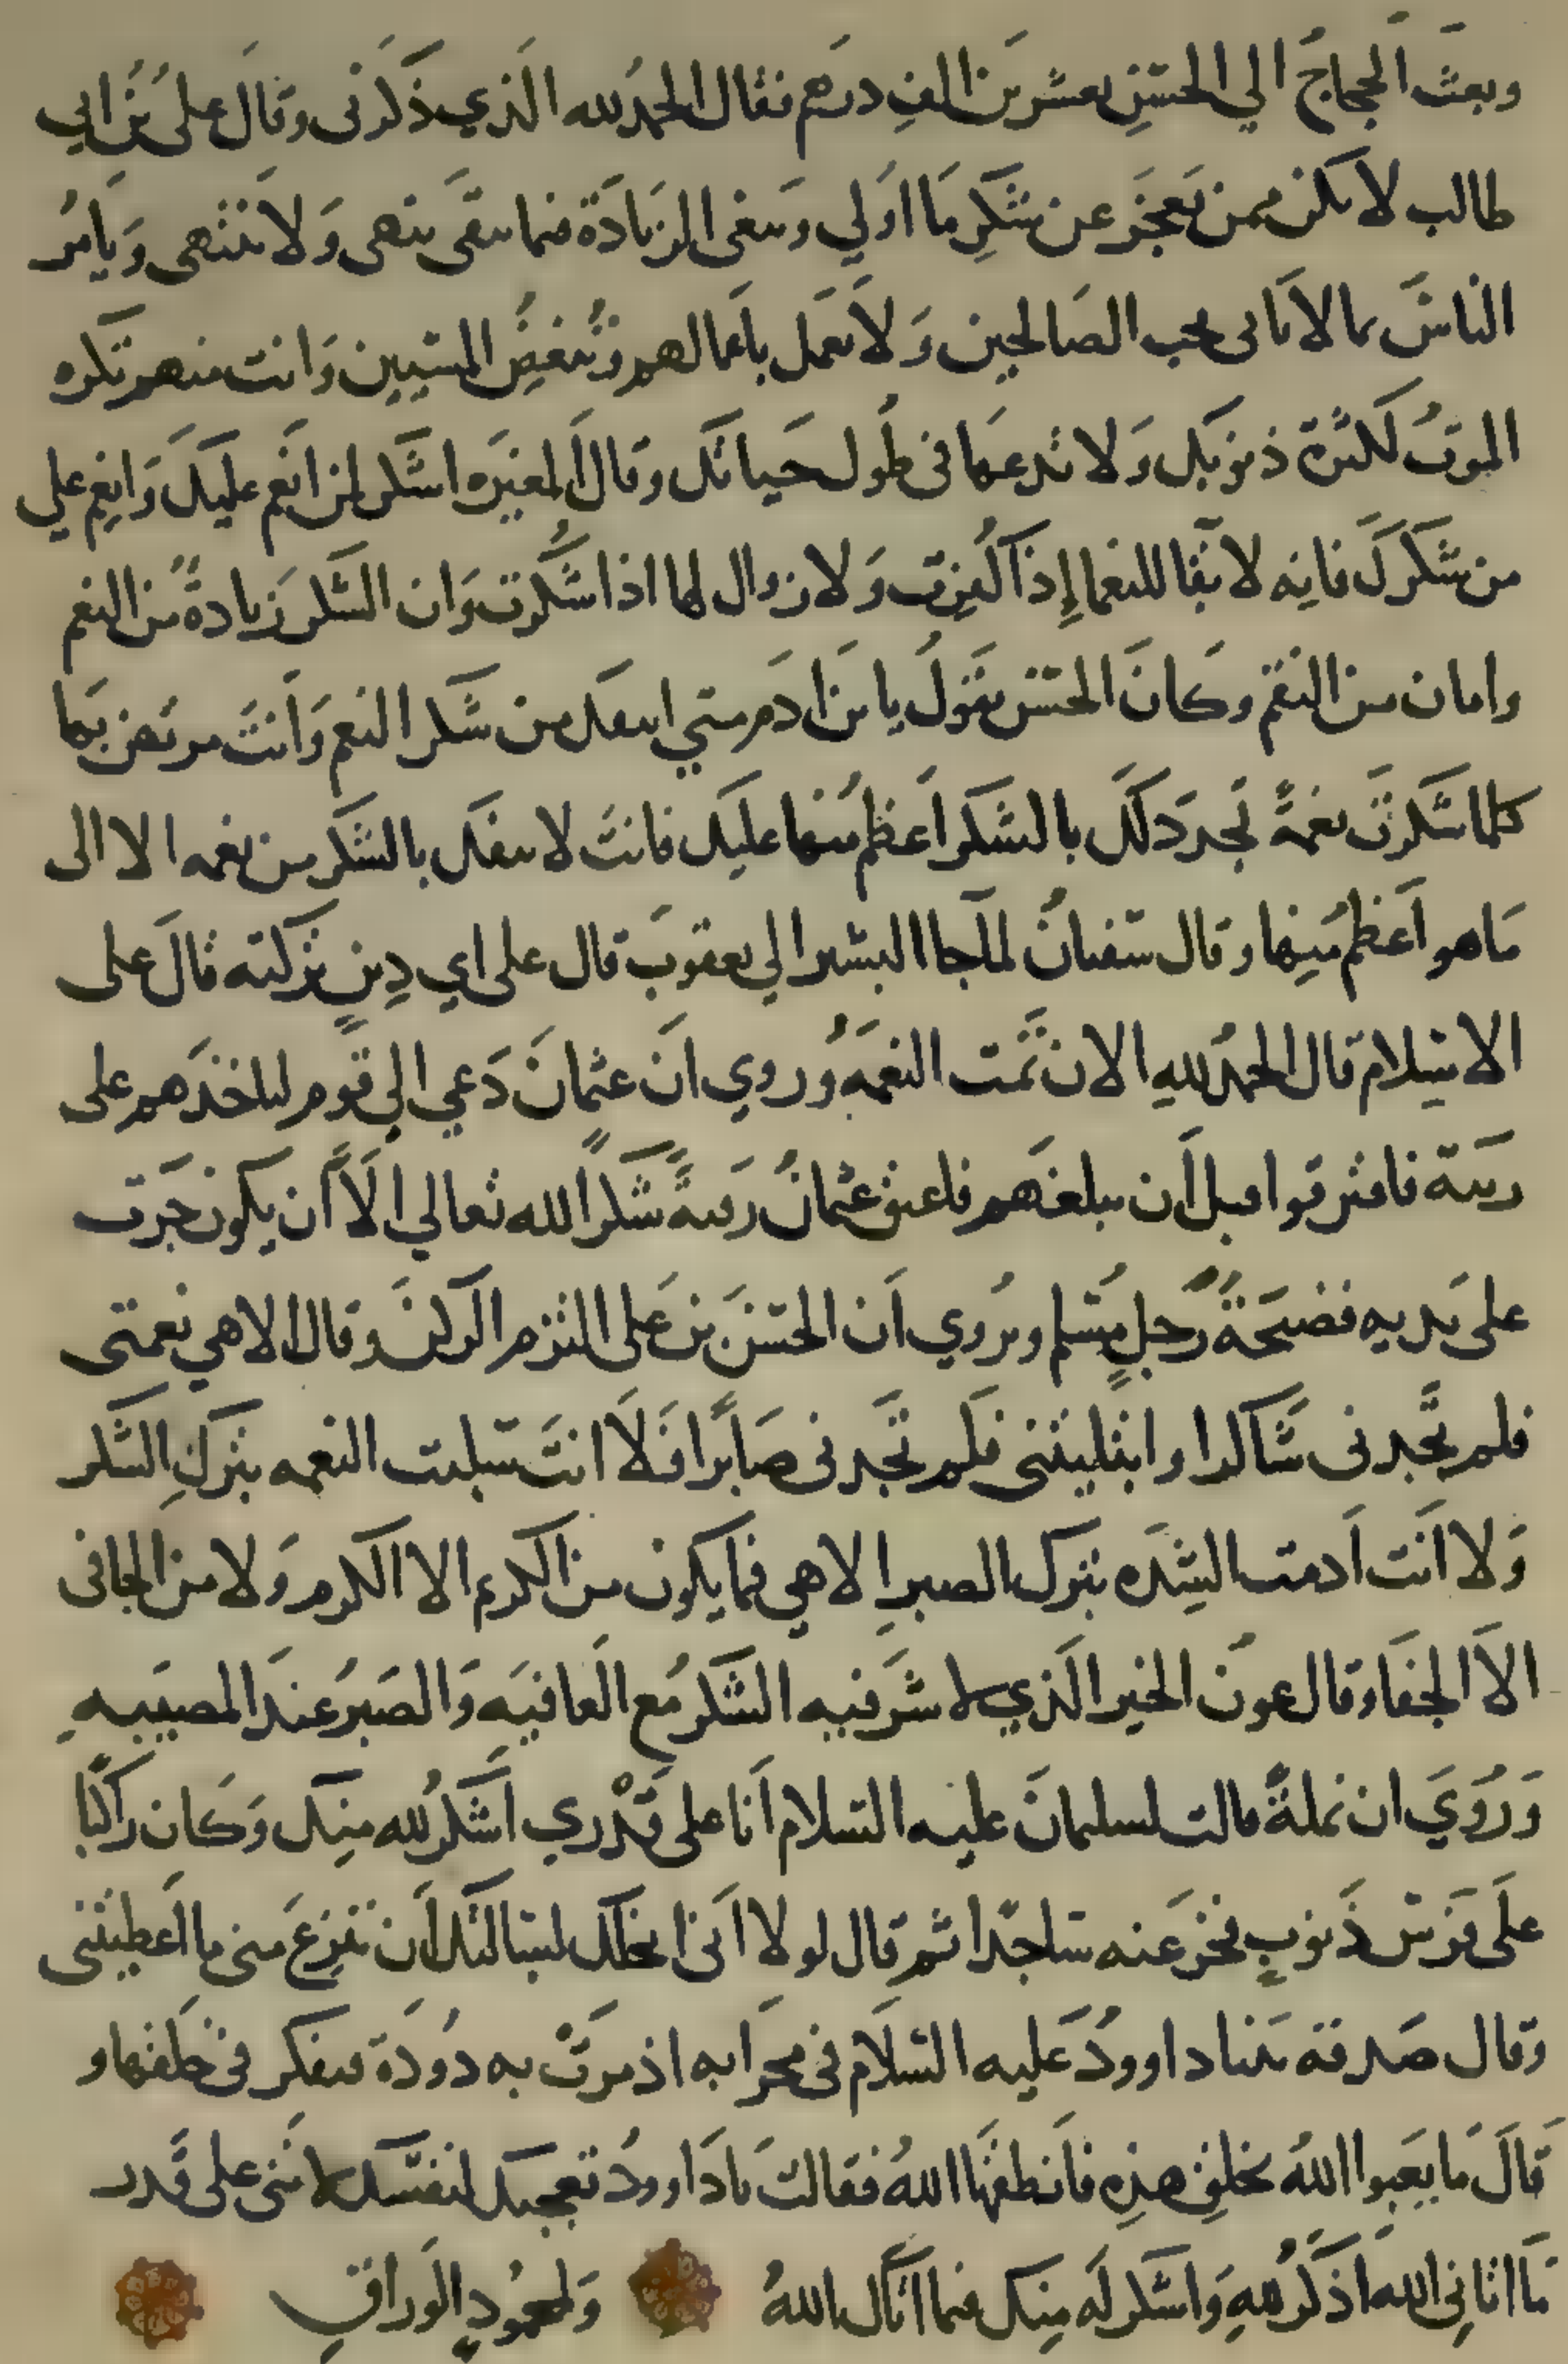 وبعثَ الحجاجُ الي الحسَنِ بعشرين الفِ درهم فقال الحمدُ لله الذي ذكرنى وقال علىُ بنُ ابي
طالب لا تكن ممن يَعجَز عن شكرِ مَا اُولي ويبتغى الزيَادَة فيما بقَى ينهى وَلا ينتهى وَيامُر
الناسَ بما لا ياتى يحب الصَالحين وَلا يَعمل باَعمالهم وَيُبغِضُ المسيين وَانت منهم تكره
الموتَ لكثرة ذنوبك وَلا تدعهَا فى طُول حَياتك وقال اَلمغيَره اشكر لمن انَعم عليكَ وَانعِم علي
من شكركَ فانه لا بَقا للنعما إِذا كُفِرت وَلا زوال لها اذا شُكِّرت وَان الشكر زيادةً من النعم
وامان من النقم وكَانَ الحسَن يقَولُ يا بنَ ادَم متي انفك من شكر النعم وَاَنتَ مرتَهن بهَا
كلما شكرتَ نعمةً تجددَ لكَ بالشكر اَعظمُ منها عليك فانتَ لا تنفك بالشكر من نعمه الا الى
مَا هو اَعظم مَنِها وقال سَفيانُ لما جاَ البشير الي يعقوبَ قال على اي دِينٍ تركته قالَ على
الاسلام قال الحمدُ للهِ الان تمَّت النعمَهُ وروي اَن عثمانَ دَعي الي قومٍ لياخذَهم على
ريبَة فافترقوا قبل اَن يبلغهَم فاعتق عثمانُ رَقبهً شكراً لله تعالي اَلاَّ اَن يكون جَرَت
على يديه فضيحَةُ رجلٍ مُسلم ويُروي اَن الحسَنَ بنَ عَلى التزم الركنَ وقال الاهي نعمتى
فلم تجَّدنى شَاكرا وابتليتنى فلم تجَدنى صَابراً فَلاَ انتَ سَلبت النعمه بتركِ الشكر
وَلا اَنت اَدمت الشِدَه بترك الصبرِ الاهي فما يكون من الكريم الا الكرم وَلا من الجافى
الاَ الجفَا وقال عونُ الخير الذي لا شَر فيه الشكر مَع العَافيَه وَالصَبرُ عندَ المصيبهِ
وَرُوَيَ ان نملةً قالت لسليمانَ عليه السلام اَنا على قَدْري اَشكرُ لله مِنك وَكَان راَكباً
على فَرسٍ ذَنوبٍ فخر عَنه ساجدًا ثم قال لولا اَنى ابخلك لسالتك اَن تنزِعَ منى ما اَعطيتنى
وقال صَدقة بَينا داوودُ عَليه السلاَم فى محرَابه اذ مرَت به دُودَة ففكر فى خلقها و
قالَ مَا يعبوا اللهُ بخلقِ هذِهِ فاَنطقهَا اللهُ فقالت يَا دَاوودُ تعجبك نفسك لاَننى على قَدر
مَا اتانِى اللهُ اذكرُ للهِ وَاشكر لَه مِنك فيما اتاَك اللهُ وَلمحمُودٍ الوَراقِ